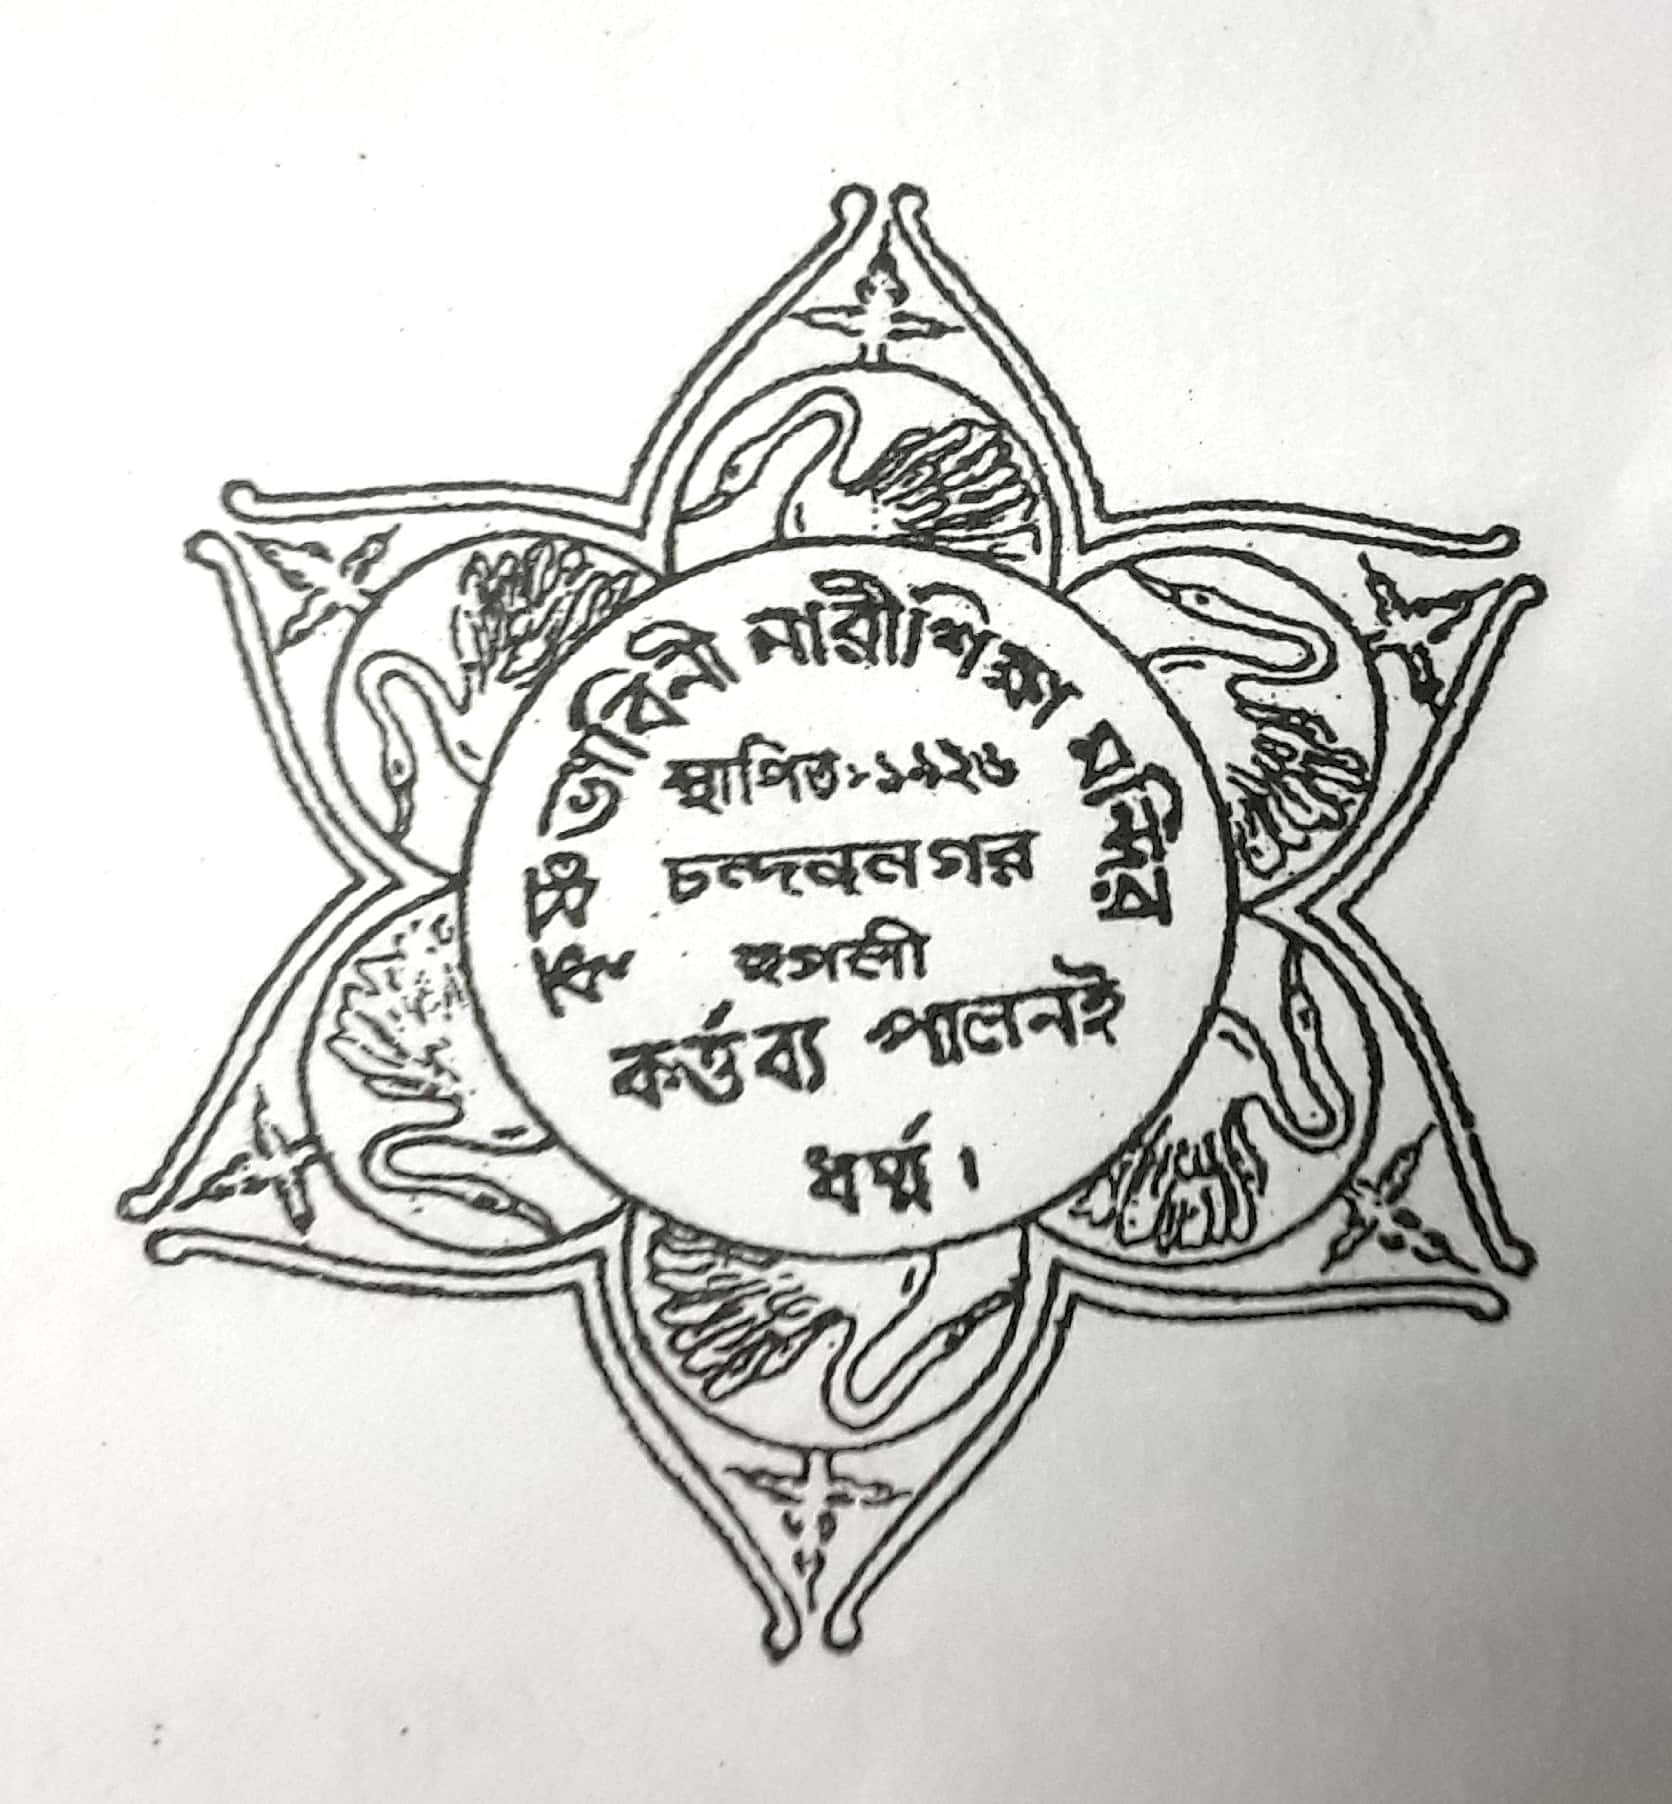 কৃষ্ণভাবিনী নারীশিক্ষা মন্দির
স্থাপিত:-১৯২৬
চন্দননগর
হুগলী
কর্ত্তব্য পালনই
ধর্ম্ম।